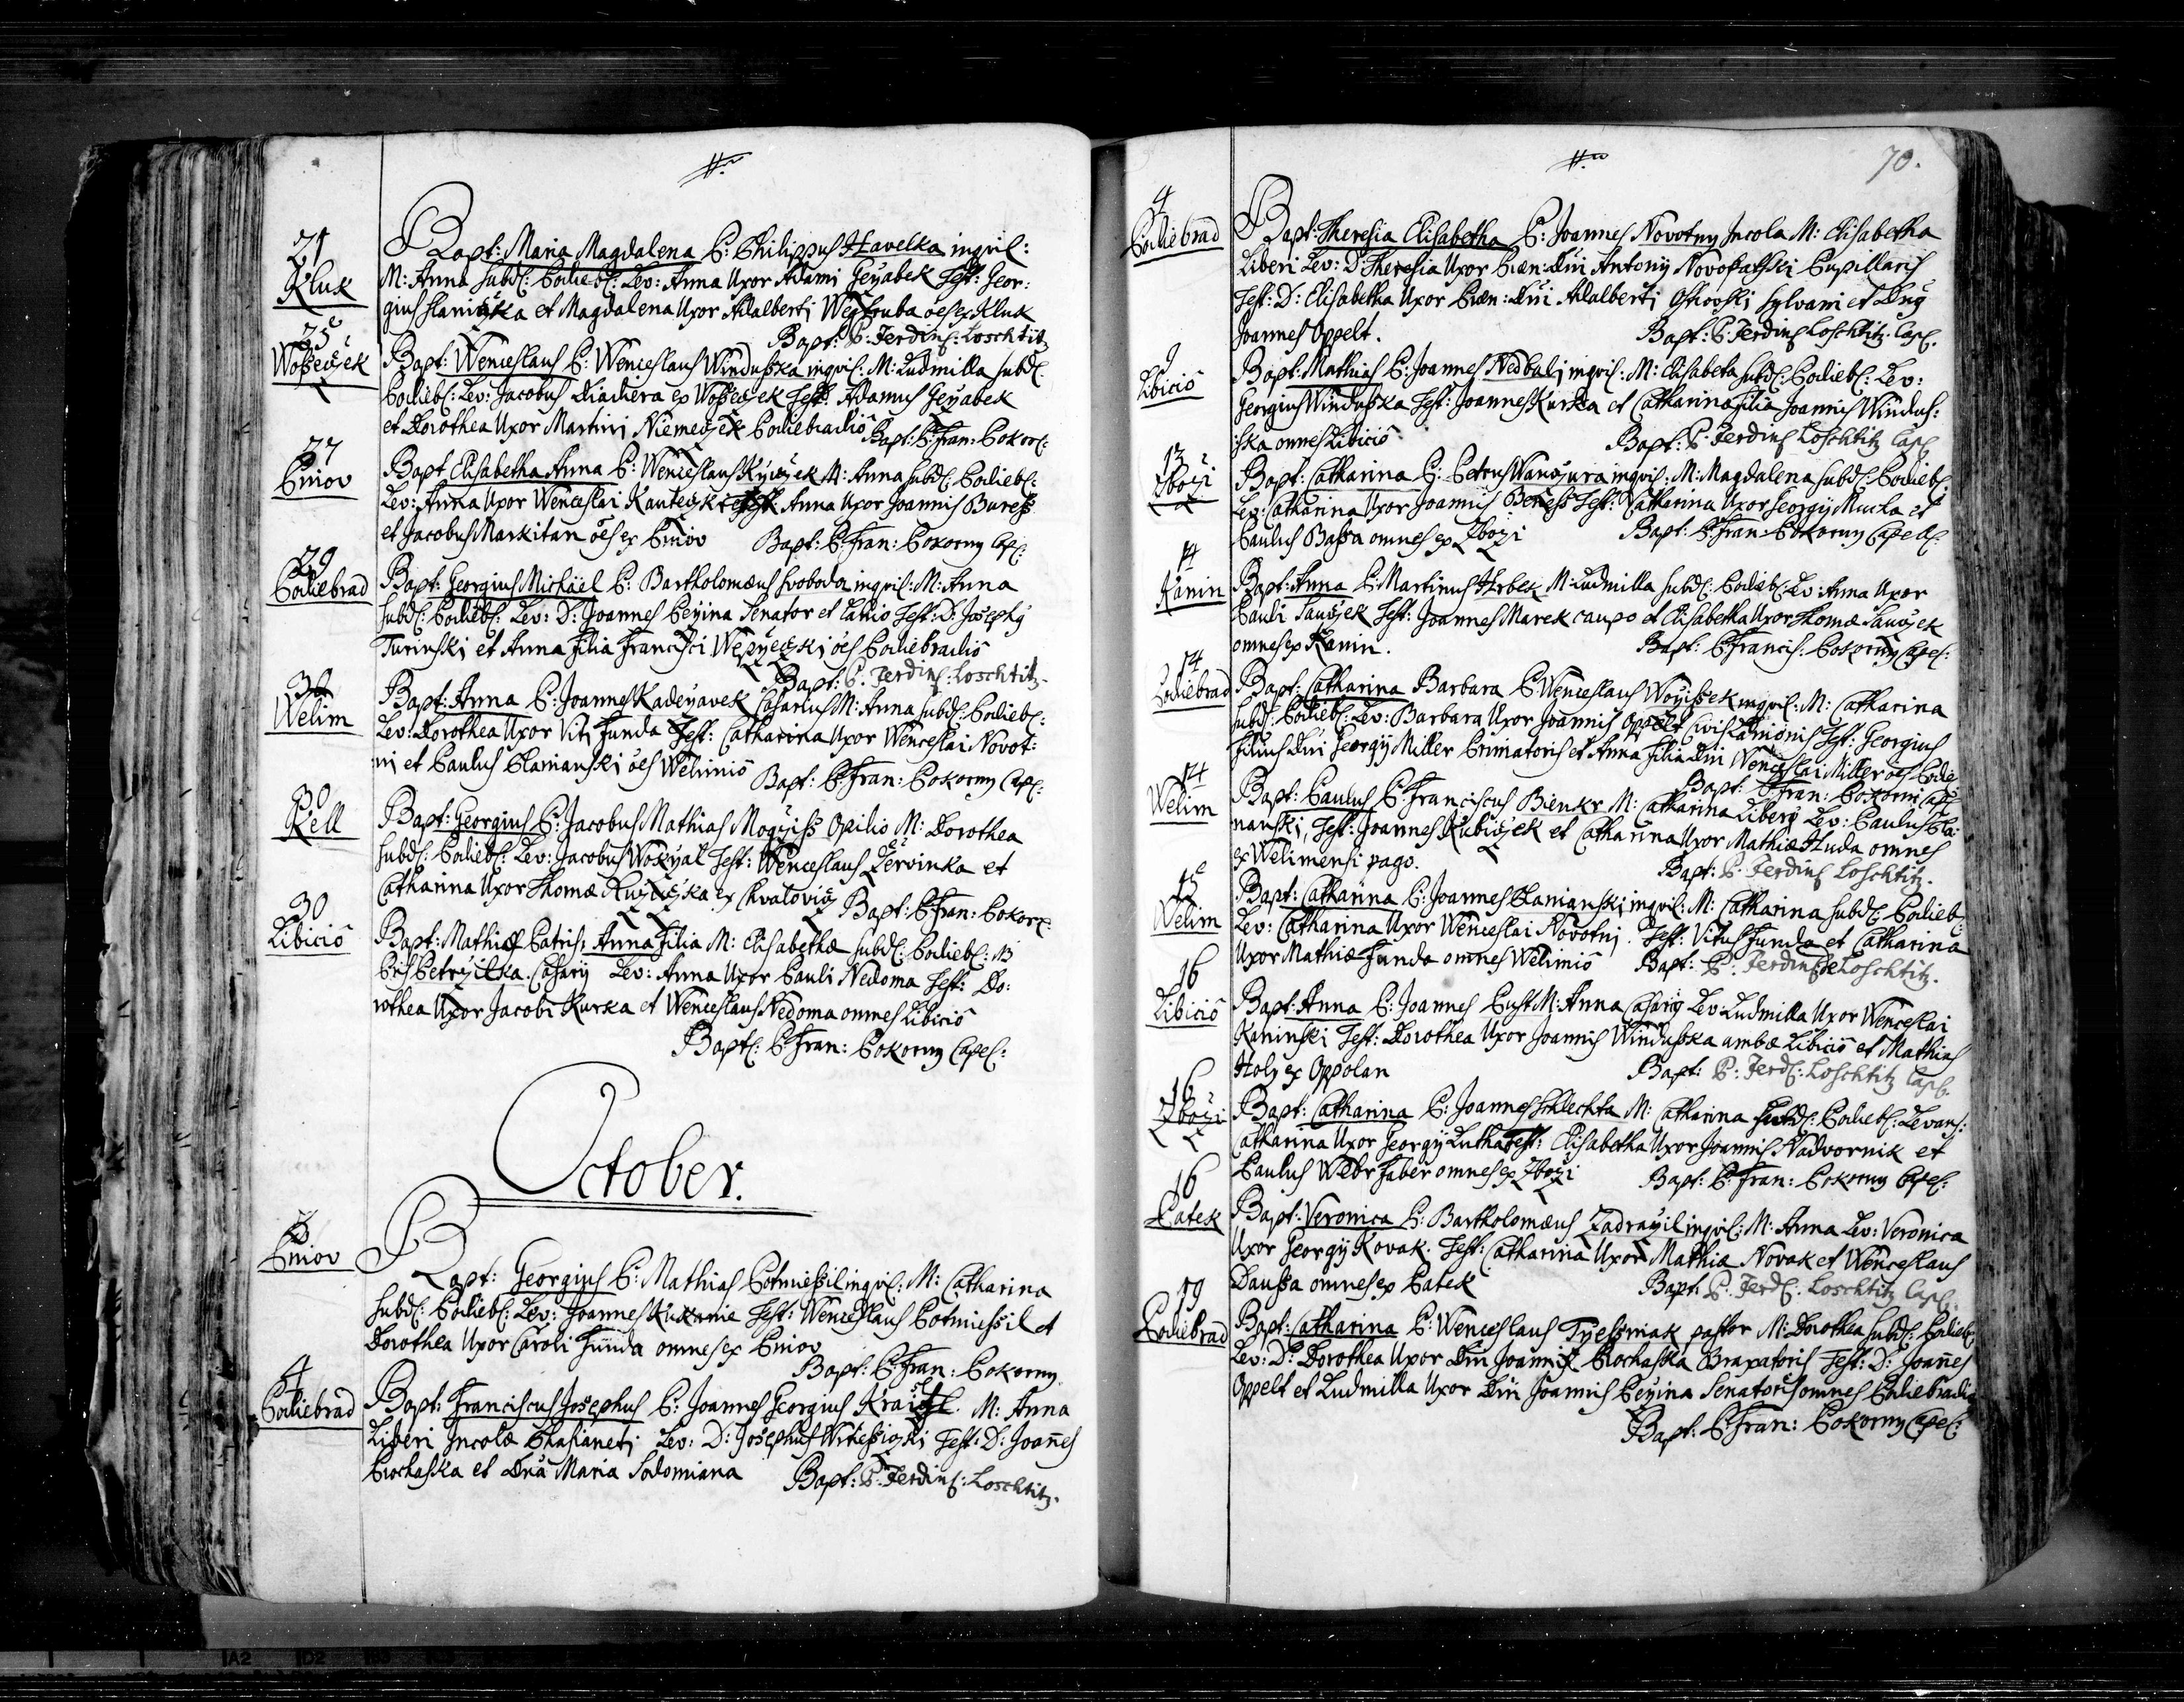 21
Kluk
Bapt: Maria Magdalena P: Philippus Havelka inqvil:
M: Anna subd: Podieb: Lev: Anna Uxor Adami Geyabek Test: Geor:
gius et Magdalena Uxor Adalberti oes ex Kluk
Bapt: P: Ferdin: Loschtitz
25
Wossecžek
Bapt: Wenceslaus P: Wenceslaus Windusska inqvil: M: Ludmilla subd:
Podieb: Lev: Jacobus ex Wossecžek Test: Adamus Geyabek
et Dorothea Uxor Martini Niemecžek Podiebradió
Bapt: P: Fran: Pokor:
27
Pniov
Bapt Elisabetha Anna P: Wenceslaus M: Anna subd: Podieb:
Lev: Anna Uxor Wenceslai Test Anna Uxor Joannis Buress
et Jacobus Markitan oes ex Pniov Bapt: P: Fran: Pokorny Cap:
29
Podiebrad
Bapt: Georgius Michael P: Bartholomæus Svoboda inqvil: M: Anna
subd: Podieb: Lev: D: Joannes Peyina Senator et Test: D: Josephg
Turinski et Anna Filia Francisci oes Podiebradió
Bapt: P: Ferdin: Loschtitz
30
Welim
Bapt: Anna P: Joannes Kadeyavek Casarius M: Anna subd: Podieb:
Lev: Dorothea Uxor Viti Funda Test: Catharina Uxor Wenceslai Novot:
ni et Paulus Planianski oes Welimió Bapt: P: Fran: Pokorny Cap:
30
Kell
Bapt: Georgius P: Jacobus Mathias Opilio M: Dorothea
subd: Podieb: Lev: Jacobus Test: Wenceslaus Zervinka et
Catharina Uxor Thomæ ex Chvalovig Bapt: P: Fran: Pokor:
30
Libició
Bapt: Mathiæ Patris, Anna Filia M: Elisabethæ subd: Podieb:
Petržilka Casarij Lev: Anna Uxor Pauli Nedoma Test: Do:
rothea Uxor Jacobi Kurka et Wenceslaus Nedoma omnes Libició
Bapt: P: Fran: Pokorny Capel:
October.
Pniov
Bapt: Georgius P: Mathias Potmiessil inqvil: M: Catharina
subd: Podieb: Lev: Joannes Test: Wenceslaus Potmiessil et
Dorothea Uxor Caroli Funda omnes ex Pniov
Bapt: P: Fran: Pokorny
4
Podiebrad
Bapt: Franciscus Josephus P: Joannes Georgius M: Anna
Liberi Incolæ Lev: D: Josephus Test: D: Joañes
Prochaska et Dna Maria Sodomiana Bapt: P: Ferdin: Loschtitz
70.
4
Podiebrad
Bapt: Theresia Elisabetha P: Joannes Novotny Incola M: Elisabetha
Liberi Lev: D: Theresia Uxor Dni Antonij Pupillaris
Test: D: Elisabetha Uxor Dni Adalberti Sylvani et Dng
Joannes Oppelt. Bapt: P: Ferdin: Loschtitz Cap:
9
Libició
Bapt: Mathias P: Joannes Nedbali inqvil: M: Elisabeta subd: Podieb: Lev:
Georgius Windusska Test: Joannes Kurka et Catharina Filia Joannis Windus:
ska omnes Libició Bapt: P: Ferdin: Loschtitz Cap
13
Zboži
Bapt: Catharina P: Petrus inqvil: M: Magdalena subd: Podieb:
Lev: Catharina Uxor Joannis Beness Test: Catharina Uxor Georgij Mucka et
Paulus Bassa omnes ex Zboži Bapt: P: Fran: Pokorny Capell:
14
Kanin
Bapt: Anna P: Martinus Hrbek M: Ludmilla subd: Podieb: Lev: Anna Uxor
Pauli Sauček Test: Joannes Marek caupo et Elisabetha Uxor Thomæ Sauček
omnes ex Kanin. Bapt: P: Francis: Pokorny Capel:
14
Podiebrad
Bapt: Catharina Barbara P: Wenceslaus Woyissek inqvil: M: Catharina
subd: Podieb: Lev: Barbara Uxor Joannis Oppelt Civis Lanionis Test: Georgius
Filius Dni Georgij Miller Primatoris et Anna Filia Dni Wenceslai Miller oes Podie
Bapt: P: Fran: Pokorni Cap
14
Welim
Bapt: Paulus P: Franciscus Bienkr M: Catharina Liberi Lev: Paulus Pla:
nanski, Test: Joannes Kubiček et Catharina Uxor Mathiæ Huda omnes
ex Welimensi pago. Bapt: P: Ferdin: Loschtitz.
15
Welim
Bapt: Catharina P: Joannes Planianski inqvil: M: Catharina subd: Podieb:
Lev: Catharina Uxor Wenceslai Novotni. Test: Vitus Funda et Catharina
Uxor Mathiæ Funda omnes Welimió Bapt: P: Ferdin: Loschtitz.
16
Libició
Bapt: Anna P: Joannes M: Anna Casarij Lev: Ludmilla Uxor Wenceslai
Kaninski Test: Dorothea Uxor Joannis Windusska ambæ Libició et Mathias
Holy ex Oppolan Bapt: P: Ferd: Loschtitz Cap:
16
Zboži
Bapt: Catharina P: Joannes Schlechta M: Catharina subd: Podieb: Levans:
Catharina Uxor Georgij Test: Elisabetha Uxor Joannis Nadvornik et
Paulus Webr Faber omnes ex Zboži Bapt: P: Fran: Pokorny Capel:
16
Patek
Bapt: Veronica P: Bartholomæus Zadražil inqvil: M: Anna Lev: Veronica
Uxor Georgij Kovak. Test: Catharina Uxor Mathiæ Novak et Wenceslaus
Daussa omnes ex Patek Bapt: P: Ferd: Loschtitz Cap:
19
Podiebrad
Bapt: Catharina P: Wenceslaus pastor M: Dorothea subd: Podieb:
Lev: D: Dorothea Uxor Dni Joannis Prochaska Braxatoris Test: D: Joañes
Oppelt et Ludmilla Uxor Dni Joannis Peyina Senatoris omnes Podiebradió
Bapt: P: Fran: Pokorny Capel: